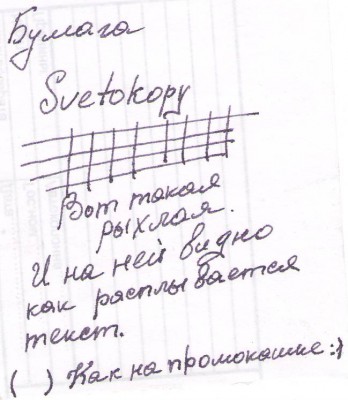 Бумага
Svetokopy
Вот такая
рыхлая.
И на ней видно
как расплывается
текст.
( ) Как на промокашке:)